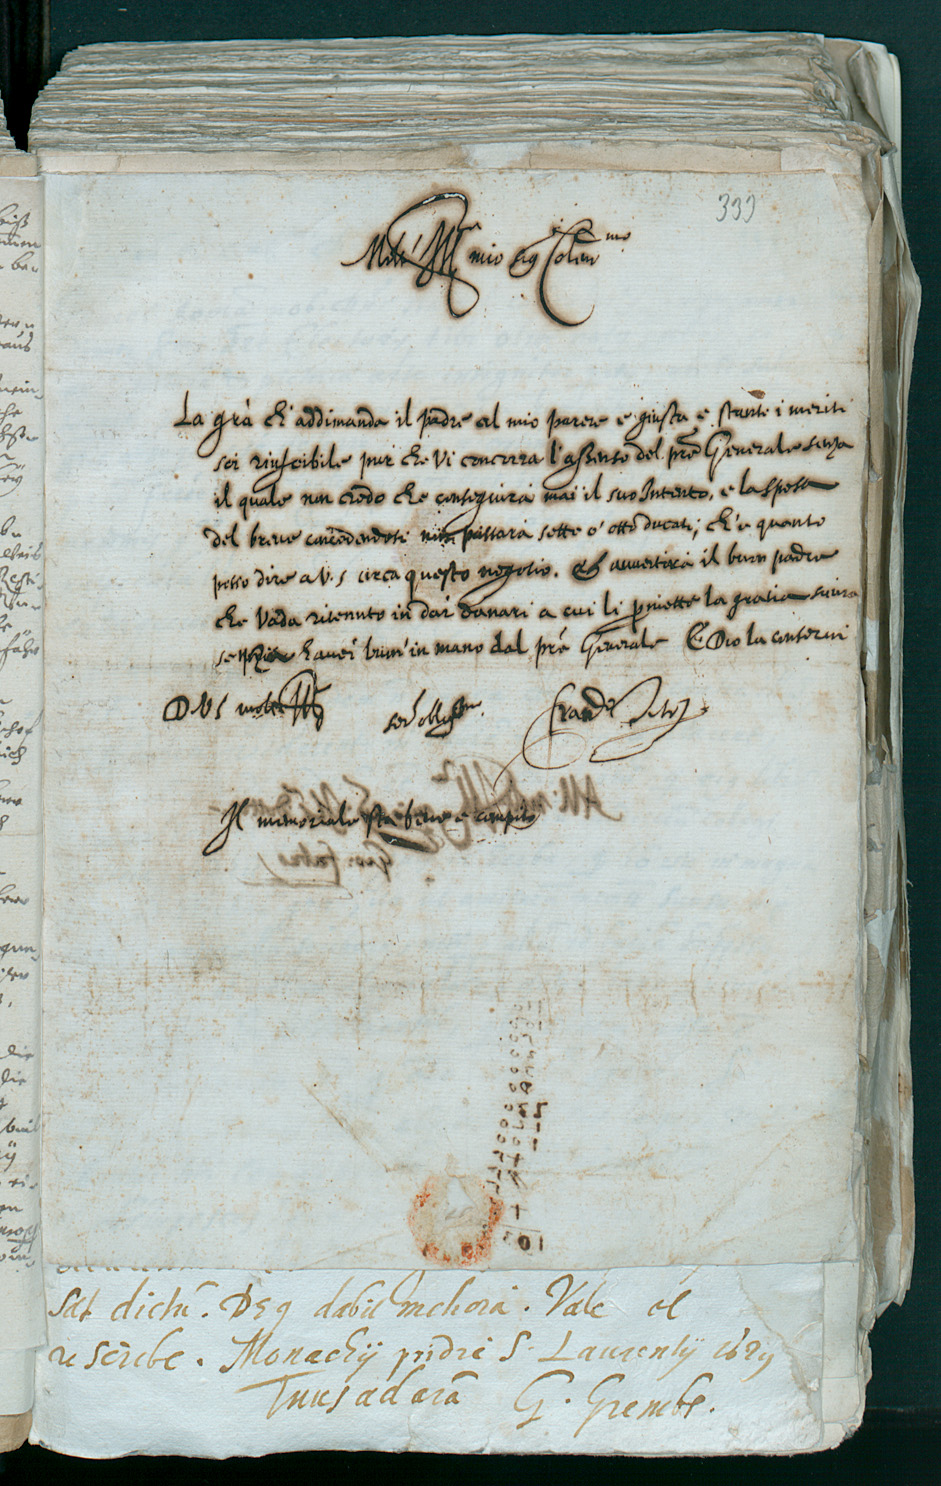 333
Molt' Ill.re mio Sig Colen.mo
La grà ch' addimanda il padre al mio parere e giusta e stante i meriti
soi riuscibile pur che vi concorra l'assenso del prê Generale senza
il quale non credo che conseguira mai il suo Intento, e la spesa
del breve concedendosi non passara sette o' otto ducati; ch'e quanto
posso dire a V.S circa questo negotio. et avvertira il buon padre
che vada ritenuto in dar danari a cui li pmette la gratia sicura
senza haver in mano dal prê Generale E Dio la conservi
D V S molt' Ill.re
Il memoriale sta bene e compito
Gio. Fabro
sat dictū. Deq dabit meliora. Vale et
rescribe. Monachij pridie S. Laurentij 1629
Tuus ad arā G. Grembs.